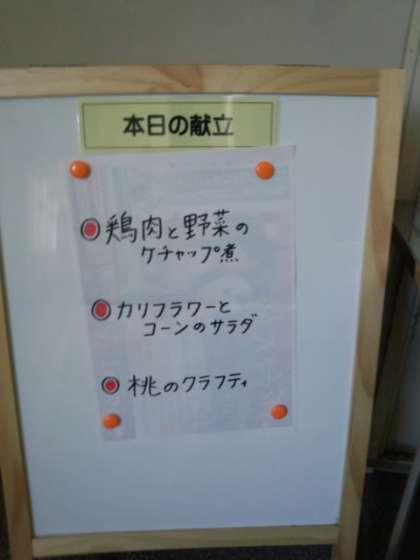 本日の献立
鶏肉と野菜の
ケチャップ煮
カリフラワーと
コーンのサラダ
桃のクラフティ